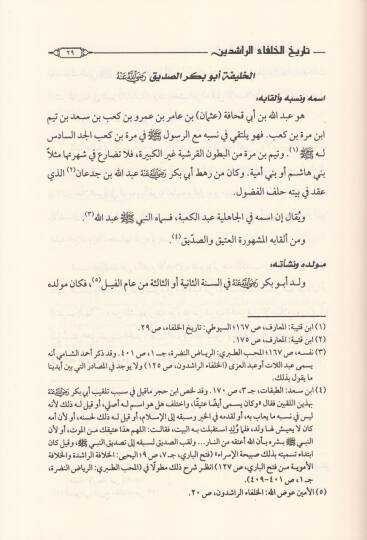 تاريخ الخلفاء الراشدين
٢٩
الخليفة أبو بكر الصديق رضي الله عنه
اسمه ونسبه وألقابه:
هو عبد الله بن أبي قحافة (عثمان) بن عامر بن عمرو بن كعب بن سعد بن تيم
ابن مرة بن كعب. فهو يلتقي في نسبه مع الرسول ﷺ في مرة بن كعب الجد السادس
له ﷺ (١). وتيم بن مرة من البطون القرشية غير الكبيرة، فلا تضارع في شهرتها مثلاً
بني هاشم أو بني أمية. وكان من رهط أبي بكر رضي الله عنه عبد الله بن جدعان(٢) الذي
عقد في بيته حلف الفضول.
ويُقال إن اسمه في الجاهلية عبد الكعبة، فسماه النبي ﷺ عبد الله(٣).
ومن ألقابه المشهورة العتيق والصدّيق(٤).
مولده ونشأته:
ولد أبو بكر رضي الله عنه في السنة الثانية أو الثالثة من عام الفيل(٥)، فكان مولده
(١) ابن قتيبة: المعارف، ص ١٦٧؛ السيوطي: تاريخ الخلفاء، ص ٢٩.
(٢) ابن قتيبة: المعارف، ص ١٧٥.
(٣) نفسه، ص ١٦٧؛ المحب الطبري: الرياض النضرة، جـ ١، ص ٤٠١. وقد ذكر أحمد الشامي أنه
يسمى عبد اللات أو عبد العزى (الخلفاء الراشدون، ص ١٢٥) ولا يوجد في المصادر التي بين أيدينا
ما يقول بذلك.
(٤) ابن سعد: الطبقات، جـ ٣، ص ١٧٠. وقد لخص ابن حجر ماقيل في سبب تلقيب أبي بكر
بهذين اللقبين فقال «وكان يسمى أيضًا عتيقًا، واختلف هل هو اسم له أصلي، أو قيل له ذلك لأنه
ليس في نسبه ما يعاب به، أو لقدمه في الخير وسبقه إلى الإسلام، أو قيل له ذلك لحسنه، أو لأن أمه
كان لا يعيش لها ولد، فلما وُلد استقبلت به البيت، فقالت: اللهم هذا عتيقك من الموت، أو لأن
النبي ﷺ بشره بأن الله أعتقه من النار... ولقب الصديق لسبقه إلى تصديق النبي ﷺ، وقيل كان
ابتداء تسميته بذلك صبيحة الإسراء» (فتح الباري، جـ ٧، ص ٩؛ اليحيى: الخلافة الراشدة والخلافة
الأموية من فتح الباري، ص ١٢٧) انظر شرح ذلك مطولًا في (المحب الطبري: الرياض النضرة،
جـ ١، ص ٤٠١-٤٠٩).
(٥) الأمين عوض الله: الخلفاء الراشدون، ص ٢٠.